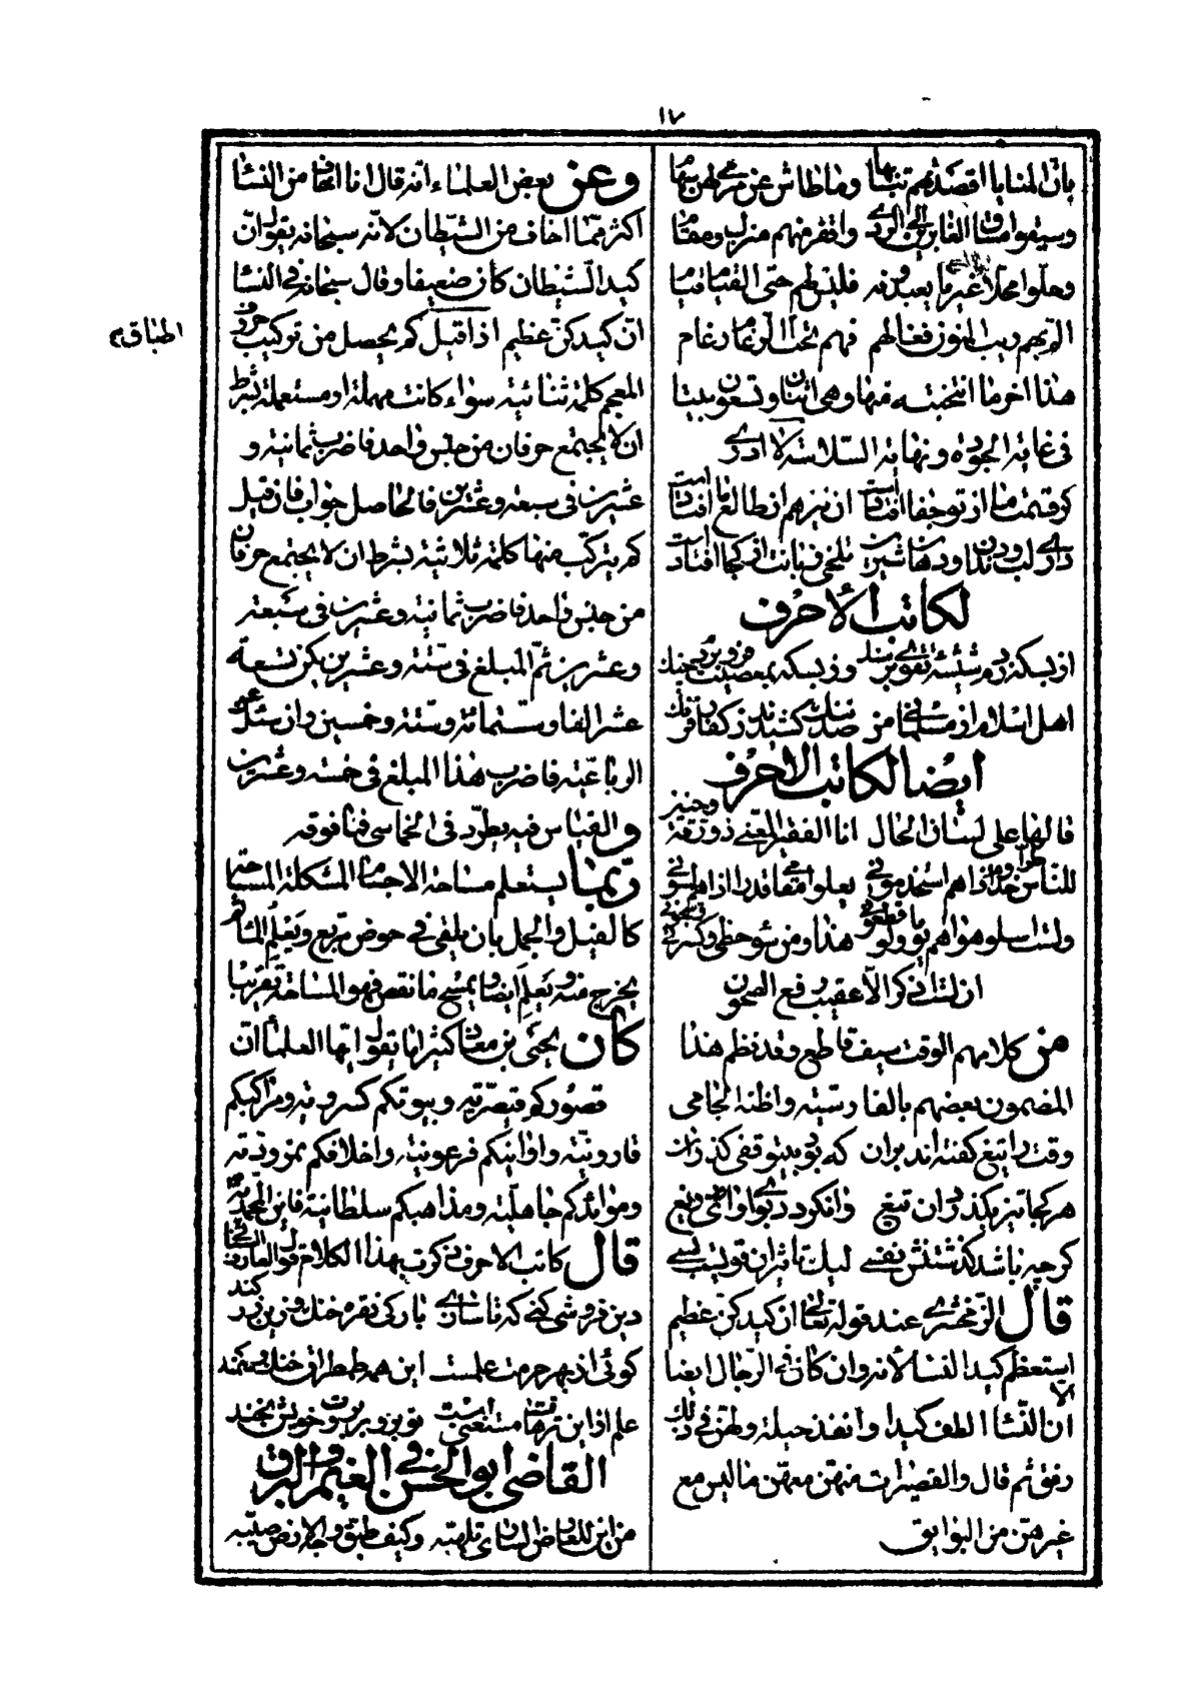 ١٧
بان المنايا اقصدتهم نبالها وما طاش عن مرمى لهن سهام
وسيقوا مساق الغابرين الى الردى واقفر منهم منزل ومقام
وحلوا محلا غير ما يعهدونه فليس لهم حتى القيام قيام
الم بهم ريب المنون فغالهم فهم تحت الرغام رغام
هذا اخر ما انتخبته منها وهى اثنان وتسعون بيتا
فى غاية الجودة ونهاية السلاسة لا ادرى
كو قيمت ما از تو جفا افتادست ان نيز هم از طالع ما افتادست
دارى لب و دندان و دهان شيرين تلخى زبانت از كجا افتادست
لكاتب الاحرف
از بسكه زدم بشيشه تقوى سنك وز بسكه بمعصيت فرو بردم چنك
اهل اسلام از مسلمانى من صد ننك كشيدند ز كفار فرنك
ايضا لكاتب الاحرف
قالها على لسان الحال انا الفقير المعنى ذو رقة وحنين
للناس طرا خدوم اذا هم استخدمونى يعلو مقامى قدرا اذا هم لمسونى
ولست اسلو هواهم يوما ولو قطعونى هذا ومن سوء حظى وكثرتى شجونى
ان لست اذكر الا عقيب رفع الصحون
من كلامهم الوقت سيف قاطع وقد نظم هذا
المضمون بعضهم بالفارسية واظنه الجامى
وقت را تيغ گفته اند بران كه بود بيتوقفى گذران
هر كجا تيز بگذرد ان تيغ
كرچه باشد گذشتنش نفسى ليك تاثير ان قويست بسى
قال الزمخشرى عند قوله تعالى ان كيدكن عظيم
استعظم كيد النساء لانه وان كان فى الرجال ايضا الا
ان النساء الطف كيدا وانفذ حيلة ولهن فى ذلك
رفق ثم قال والقصيرات منهن معهن ما ليس مع
غيرهن من البوايق
وعن بعض العلماء انه قال انا اخاف من النساء
اكثر مما اخاف من الشيطان لانه سبحانه يقول ان
كيد الشيطان كان ضعيفا وقال سبحانه فى النساء
ان كيدكن عظيم اذا قيل كم يحصل من تركيب حروف
المعجم كلمة ثنائية سواء كانت مهملة او مستعملة بشرط
ان لا يجتمع حرفان من جنس واحد فاضرب ثمانية و
عشرين فى سبعة وعشرين فالحاصل جواب فان قيل
كم يتركب منها كلمة ثلاثية بشرط ان لا يجتمع حرفان
من جنس واحد فاضرب ثمانية وعشرين فى سبعة
وعشرين ثم المبلغ فى ستة وعشرين يكن تسعة
عشر الفا وستمائة وستة وخمسين وان سئلت عن
الرباعية فاضرب هذا المبلغ فى خمسة وعشرين
والقياس فيه يطرد فى الخماسى فما فوقه
ربما يستعلم مساحة الاجسام المشكلة المساحة
كالفيل والجمل بان يلقى فى حوض مربع ويعلم الماء ثم
يخرج منه ويعلم ايضا ويمسح ما نقص فهو المساحة تقريبا
كان يحيى بن معاذ كثيرا ما يقول ايها العلماء ان
قصوركم قيصرية وبيوتكم كسروية ومراكبكم
قارونية واوانيكم فرعونية واخلاقكم نمروذية
وموائدكم جاهلية ومذاهبكم سلطانية فاين المحمدية
قال كاتب الاحرف ذكرت بهذا الكلام قول العارف السنائى
دين فروشى كنى كه تا سازى باركى نقره خنك و زين زر كند
گوئى از بهر حرمت علمست اين همه طمطراق خنك وسمند
علم از اين ترهات مستغنى است تو برو بر بروت خويش بخند
القاضى ابو الحسن فى الغيم والبرق
من اين للعارض السارى تلهبه وكيف طبق وجه الارض صيبه
الطباق